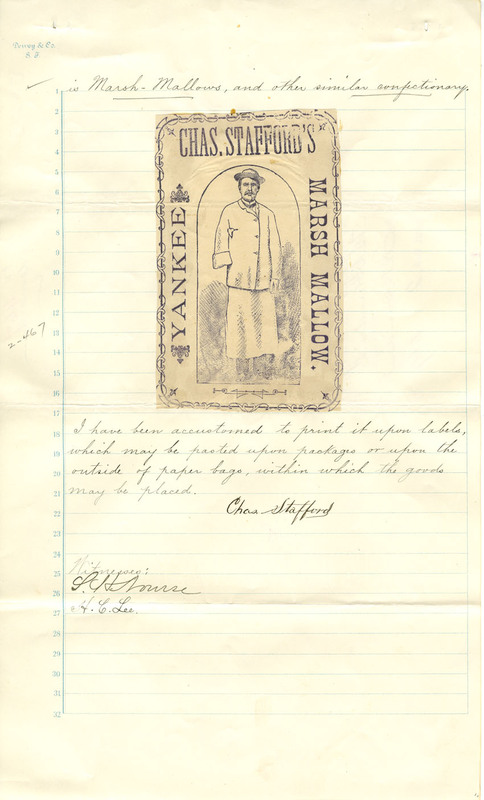 Dewey & Co.
S. F.
1 is Marsh-Mallows, and other similar confectionary.
2
3
4
5
6
7
8
9
10
11
12
13
14
15
16
17
CHAS. STAFFORD'S
YANKEE
MARSH MALLOW.
2-467
18 I have been accustomed to print it upon labels,
19 which may be pasted upon packages or upon the
20 outside of paper bags, within which the goods
21 may be placed.
22 Chas Stafford
23
24
25 Witnesses:
26 S. H. Nourse
27 H. C. Lee.
28
29
30
31
32